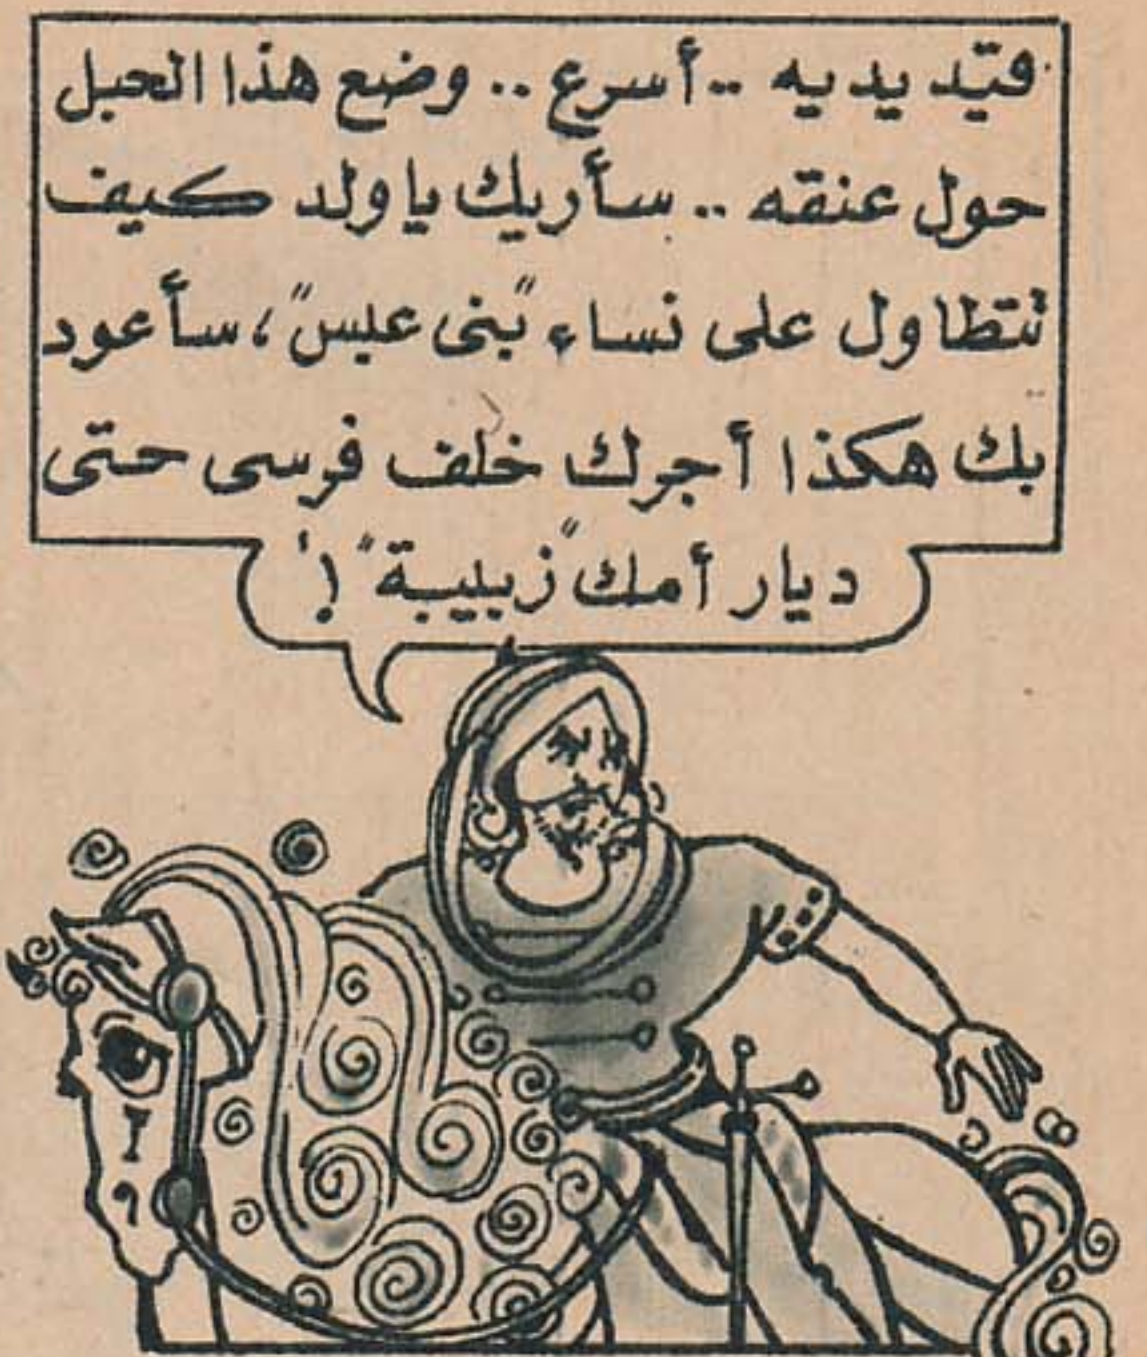 قيّد يديه .. أسرع .. وضع هذا الحبل
حول عنقه .. سأريك يا ولد كيف
تتطاول على نساء "بنى عبس"، سأعود
بك هكذا أجرك خلف فرسى حتى
ديار أمك "زبيبة"!